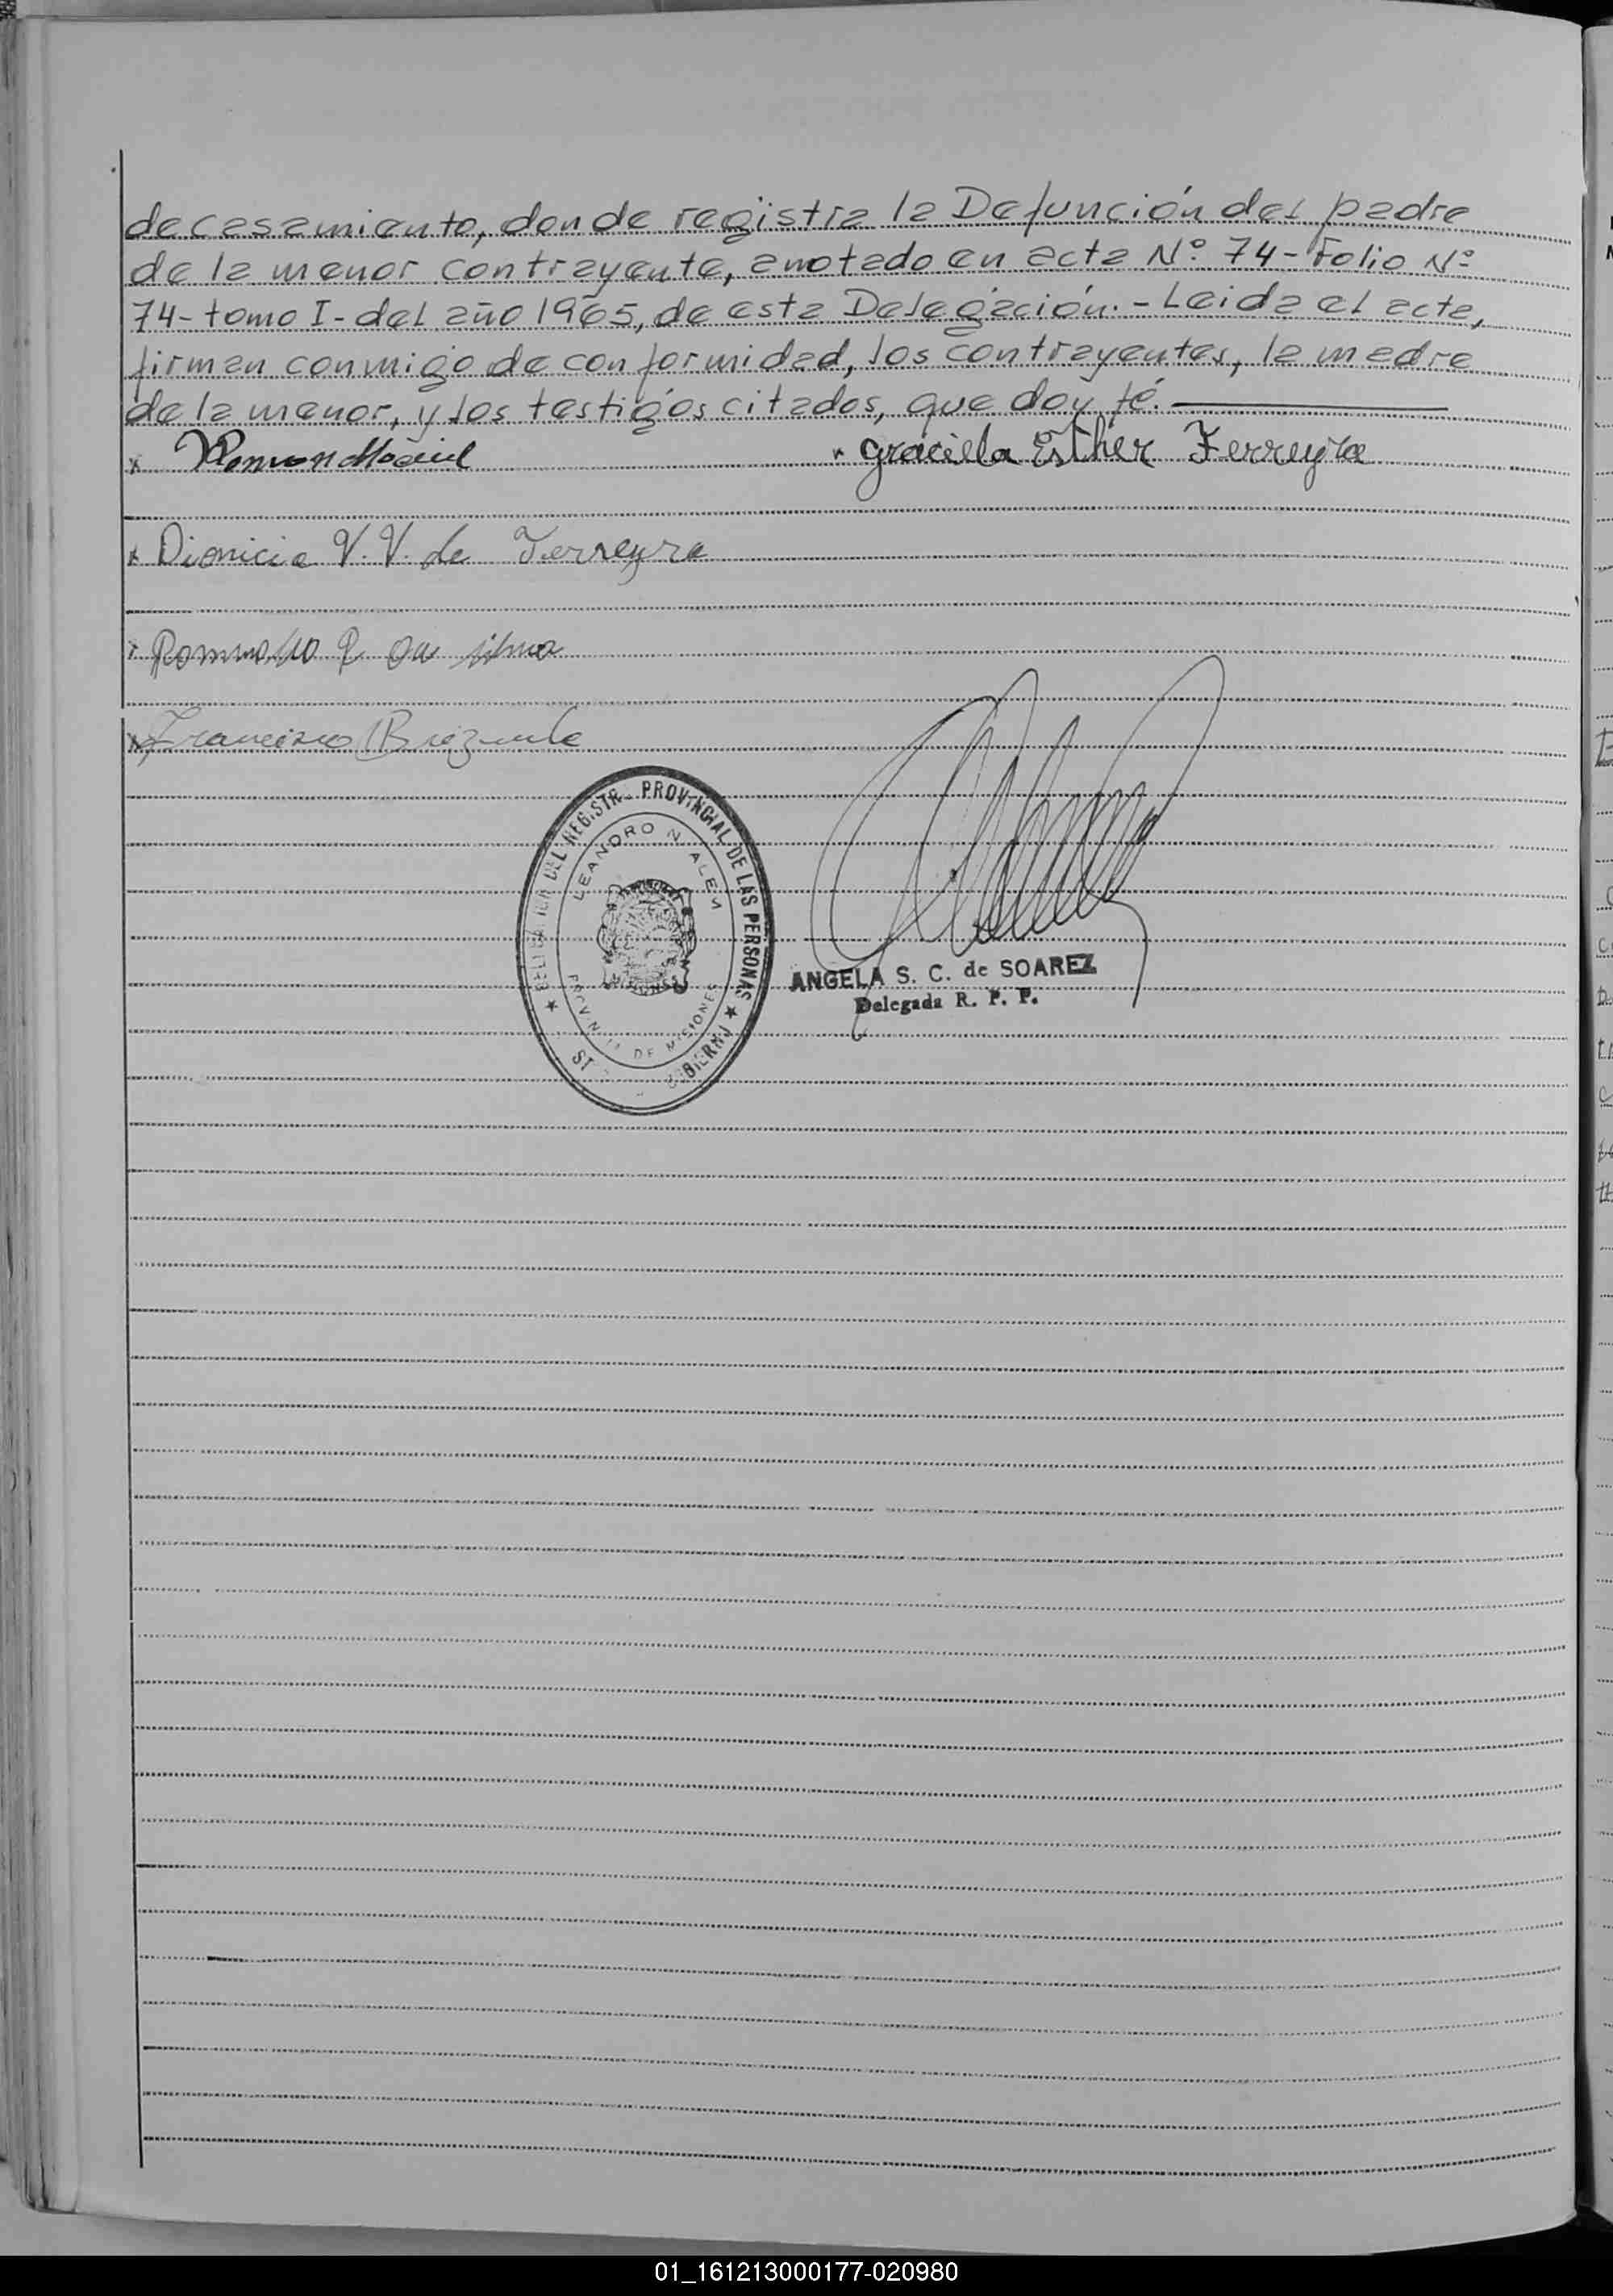 de casamiento, donde registra la Defunción del padre
de la menor contrayente, anotado en acta Nº 74 - Folio Nº
74 - tomo I - del año 1965, de esta Delegación. - Leida el acta,
firman conmigo de conformidad, los contrayentes, la madre
de la menor, y los testigos citados, que doy fé.
x Ramon Maciel x Graciela Esther Ferreyra
x Dionicia V. V. de Ferreyra
x da silva
x Francisco Brizuela
DEL REGISTR PROVINCIAL DE LAS PERSONAS
LEANDRO N. ALEM
DE MISIONES
ANGELA S. C. de SOAREZ
Delegada R. P. P.
01_161213000177-020980